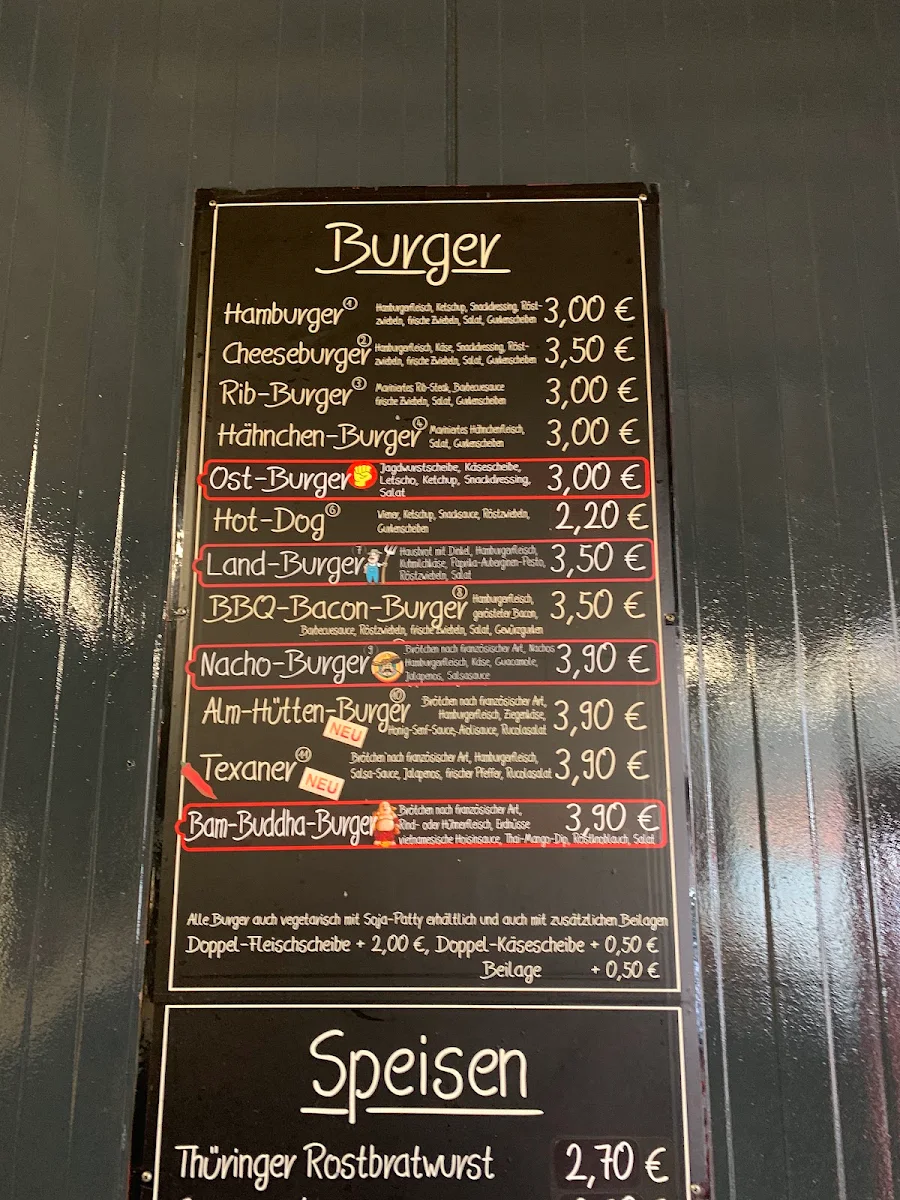 Burger
Hamburger 1 Hamburgerfleisch, Ketchup, Snackdressing, Röst- 3,00 €
zwiebeln, frische Zwiebeln, Salat, Gurkenscheiben
Cheeseburger 2 Hamburgerfleisch, Käse, Snackdressing, Röst- 3,50 €
zwiebeln, frische Zwiebeln, Salat, Gurkenscheiben
Rib-Burger 3 Mariniertes Rib-Steak, Barbecuesauce 3,00 €
frische Zwiebeln, Salat, Gurkenscheiben
Hähnchen-Burger 4 Mariniertes Hähnchenfleisch, 3,00 €
Salat, Gurkenscheiben
Ost-Burger Jagdwurstscheibe, Käsescheibe, 3,00 €
Letscho, Ketchup, Snackdressing,
Salat
Hot-Dog 6 Wiener, Ketchup, Snacksauce, Röstzwiebeln, 2,20 €
Gurkenscheiben
Land-Burger 7 Hausbrot mit Dinkel, Hamburgerfleisch, 3,50 €
Kuhmilchkäse, Paprika-Auberginen-Pesto,
Röstzwiebeln, Salat
BBQ-Bacon-Burger 8 Hamburgerfleisch, 3,50 €
gerösteter Bacon,
Barbecuesauce, Röstzwiebeln, frische Zwiebeln, Salat, Gewürzgurken
Nacho-Burger 9 Brötchen nach französischer Art, Nachos 3,90 €
Hamburgerfleisch, Käse, Guacamole,
Jalapenos, Salsasauce
Alm-Hütten-Burger 10 Brötchen nach französischer Art, 3,90 €
Hamburgerfleisch, Ziegenkäse,
NEU Honig-Senf-Sauce, Aiolisauce, Rucolasalat
Texaner 11 Brötchen nach französischer Art, Hamburgerfleisch, 3,90 €
NEU Salsa-Sauce, Jalapenos, frischer Pfeffer, Rucolasalat
Bam-Buddha-Burger Brötchen nach französischer Art, 3,90 €
Rind- oder Hühnerfleisch, Erdnüsse
vietnamesische Hoisinsauce, Thai-Mango-Dip, Röstknoblauch, Salat
Alle Burger auch vegetarisch mit Soja-Patty erhältlich und auch mit zusätzlichen Beilagen
Doppel-Fleischscheibe + 2,00 €, Doppel-Käsescheibe + 0,50 €
Beilage + 0,50 €
Speisen
Thüringer Rostbratwurst 2,70 €